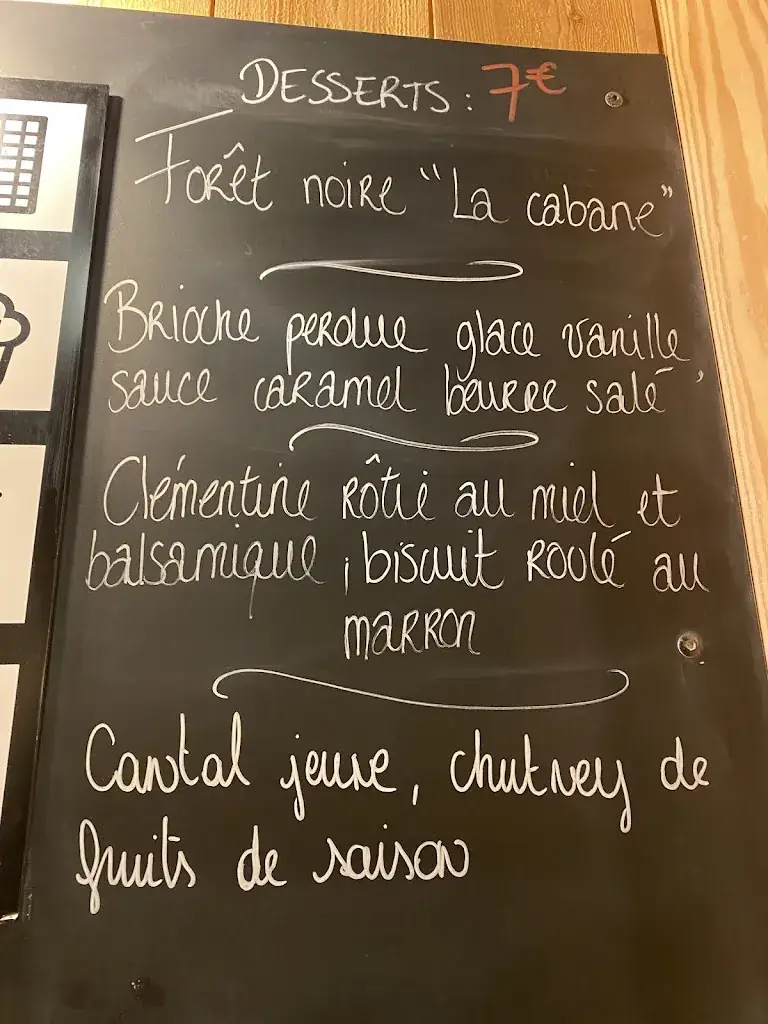 DESSERTS : 7€
Forêt noire "La cabane"
Brioche perdue glace vanille,
sauce caramel beurre salé
Clémentine rôtie au miel et
balsamique, biscuit roulé au
marron
Cantal jeune, chutney de
fruits de saison